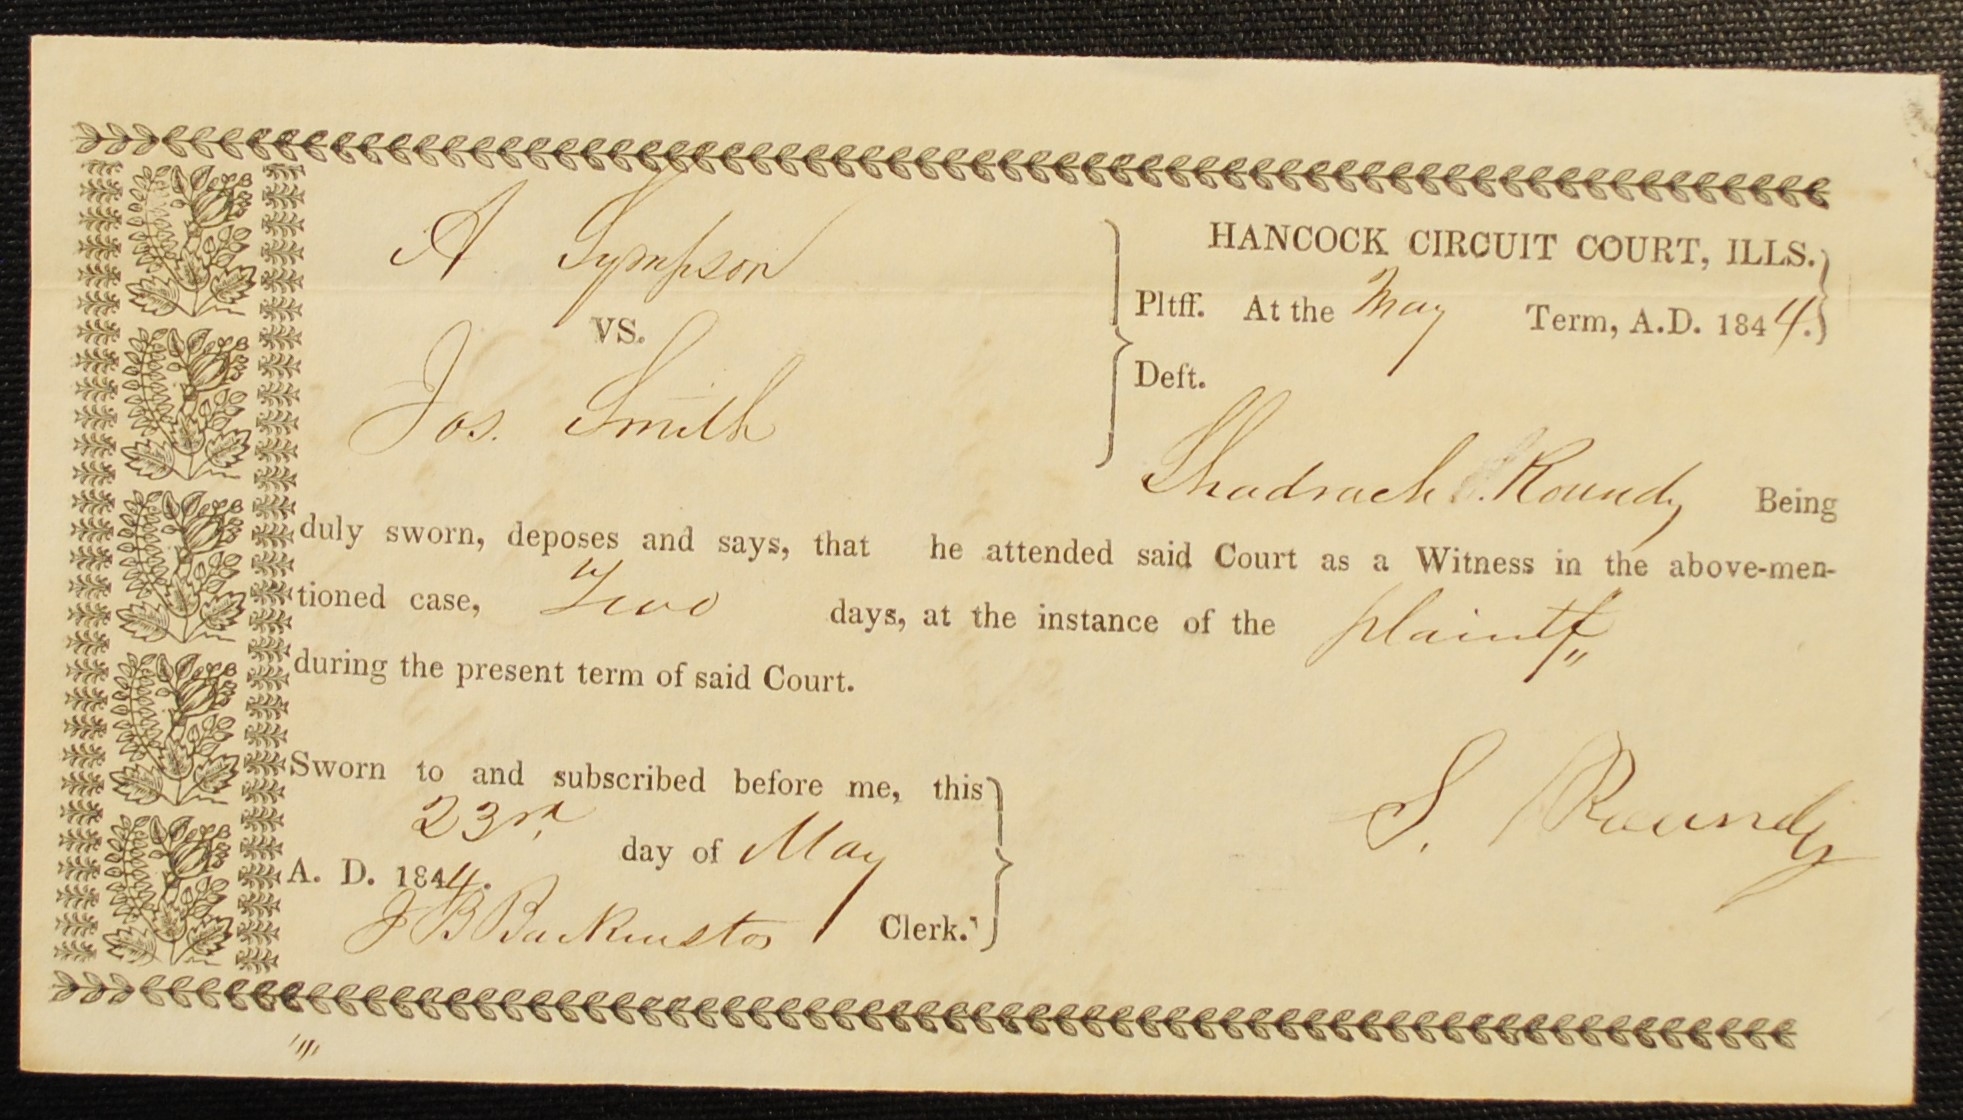 HANCOCK CIRCUIT COURT, ILLS.
A Sympson
Pltff. At the May Term, A.D. 1844.
VS.
Deft.
Jos. Smith
Shadrach Roundy Being
duly sworn, deposes and says, that he attended said Court as a Witness in the above-men-
tioned case, Two days, at the instance of the plaintff
during the present term of said Court.
Sworn to and subscribed before me, this
23rd day of May
A. D. 1844.
S. Roundy
J B Backenstos Clerk.